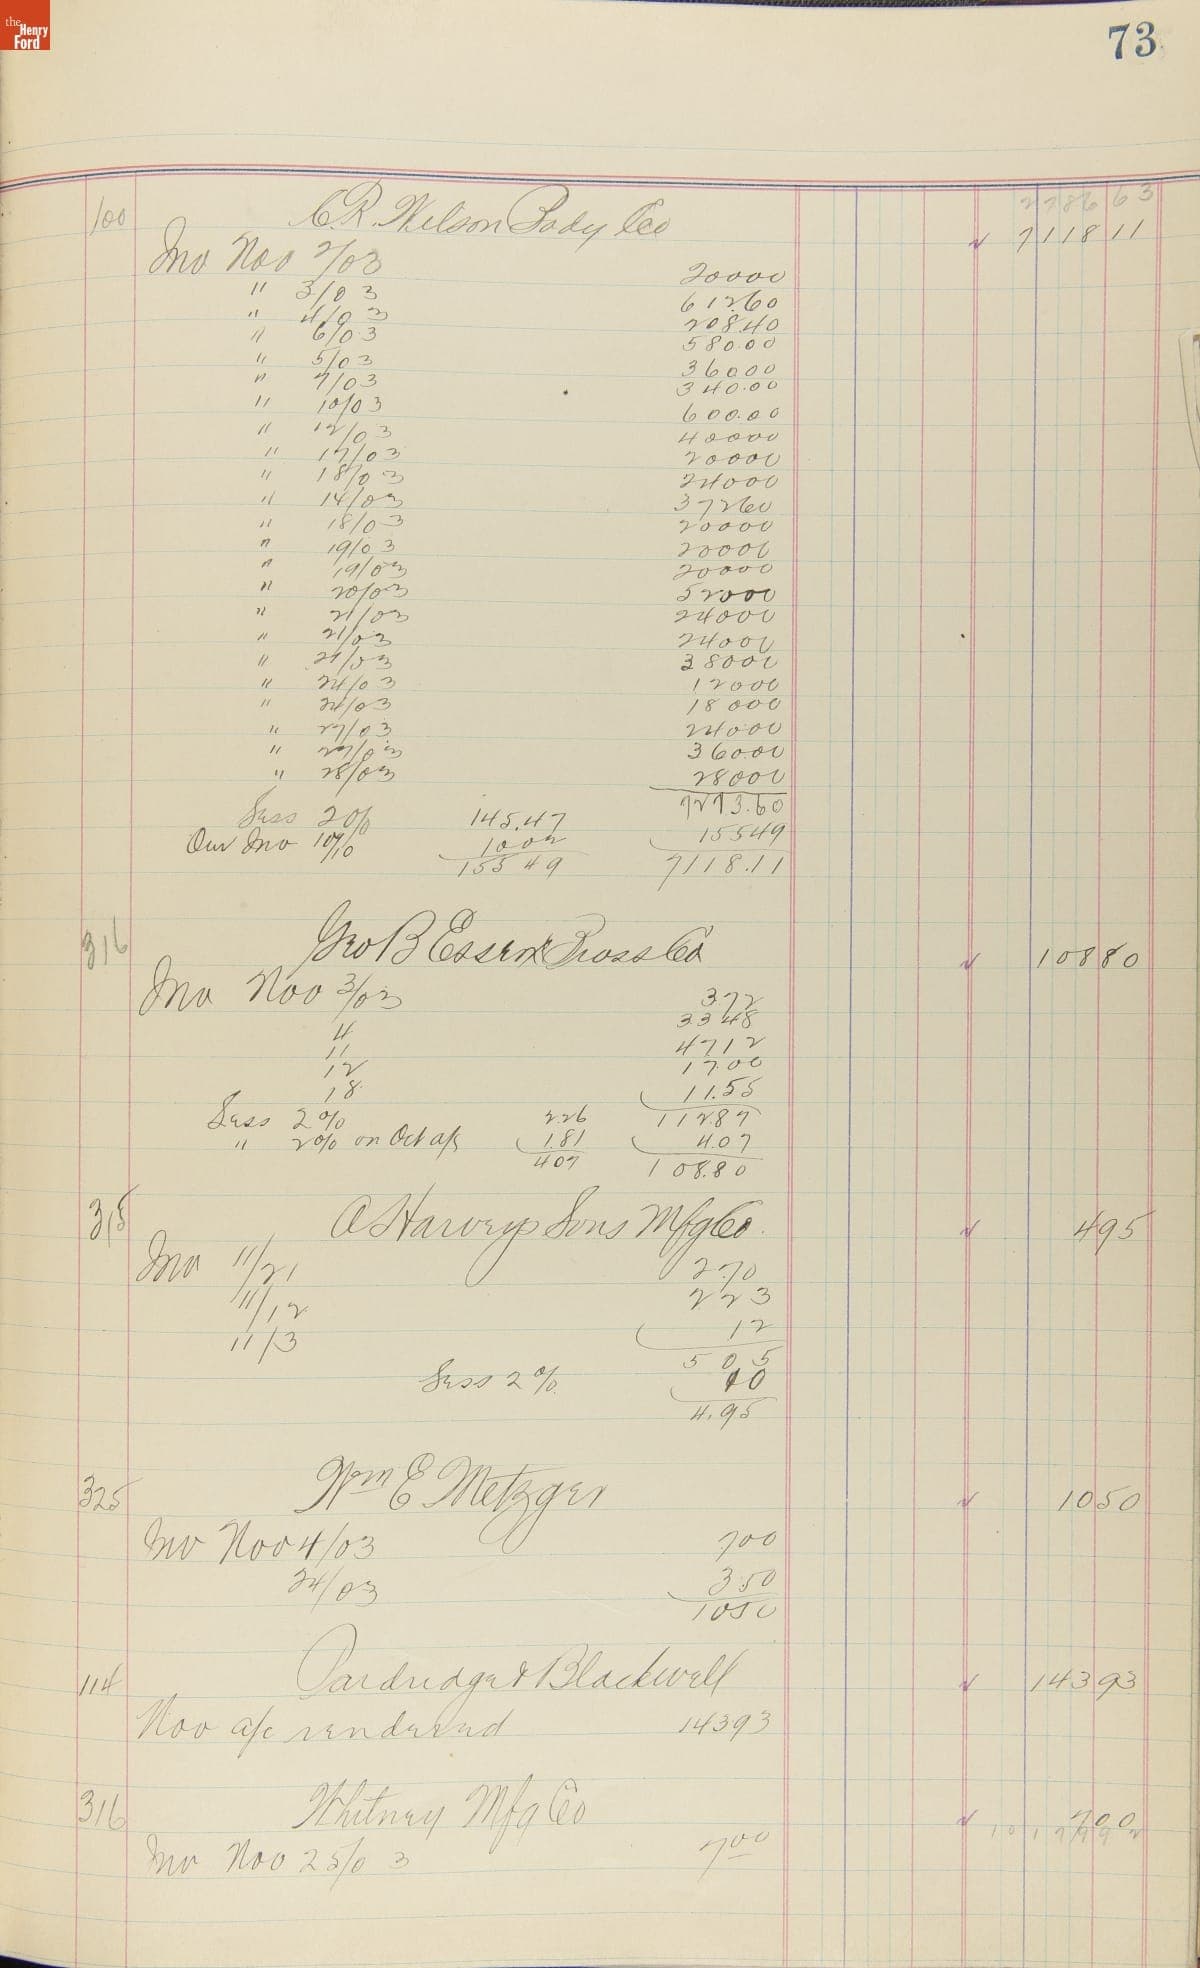 the Henry Ford
73
2286 63
100 C.R. Wilson Body Co 7118 11
Inv Nov 2/03 20000
" 3/03 612.60
" 4/03 208.40
" 6/03 580.00
" 5/03 36000
" 7/03 340.00
" 10/03 600.00
" 12/03 40000
" 17/03 20000
" 18/03 24000
" 14/03 37260
" 18/03 20000
" 19/03 20000
" 19/03 20000
" 20/03 52000
" 21/03 24000
" 21/03 24000
" 21/03 38000
" 24/03 12000
" 24/03 18000
" 27/03 240.00
" 27/03 360.00
" 28/03 28000
7273.60
Less 2% 145.47
Our Inv 10/10 1002 15549
15549 7118.11
316 Geo B Essex Brass Co 10880
Inv Nov 3/03 372
4 33.48
11 4712
12 17.00
18 11.55
Less 2% 2.26 11287
" 2% on Oct a/c 1.81 407
407 108.80
315 A Harveys Sons Mfg Co. 495
Inv 11/21 2.70
11/12 223
11/3 12
505
Less 2% 10
4.95
325 Wm E Metzger 1050
Inv Nov 4/03 700
24/03 3.50
1050
114 Pardridge & Blackwell 14393
Nov a/c rendered 14393
316 Whitney Mfg Co 700
Inv Nov 25/03 700